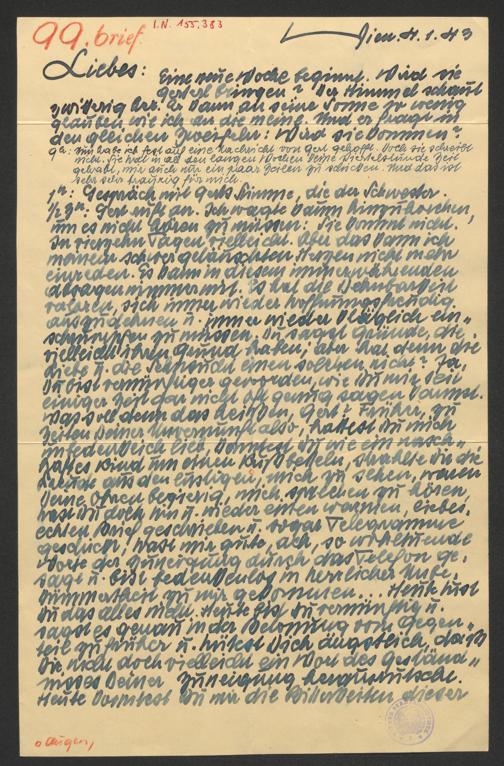 I.N. 155.383
99. brief.
Wien. 4. 1. 43
Liebes:
Eine neue Woche beginnt. Wird sie
Gerterl bringen? Der Himmel schaut
zwittrig her. Er kann an seine Sonne so wenig
glauben wie ich an die meine. Und er fragt in
den gleichen Zweifeln: Wird sie kommen?
9h. Nun habe ich fest auf eine Nachricht von Gert gehofft. Doch sie schreibt
nicht. Sie hat in all den langen Wochen keine Viertelstunde Zeit
gehabt, mir auch nur ein paar Zeilen zu schicken. Und das ist
sehr sehr traurig für mich.
1h: Gespräch mit Gerts Stimme, die der Schwester.
1/2 3h: Gert ruft an. Ich wagte kaum hinzuhorchen,
um es nicht hören zu müssen: Sie kommt nicht.
In vierzehn Tagen vielleicht. Aber das kann ich
meinem schwer getäuschten Herzen nicht mehr
einreden. Es kann in diesem immerwährenden
absagen nimmer mit. Es hat die Dehnbarkeit
verloren, sich immer wieder hoffnungsfreudig
auszudehnen u. immer wieder kläglich ein-
schrumpfen zu müssen. Du sagst Gründe, die
vielleicht ihren Grund haben, aber hat denn die
Liebe u. die Sehnsucht einen solchen nicht? Ja,
Du bist vernünftiger geworden, wie Du mir seit
einiger Zeit gar nicht oft genug sagen kannst.
Was soll denn das heißen, Gert? Früher, zu
Zeiten Deiner Unvernunft also, hattest Du mich
unfehlbar lieb, konntest Du wie ein nasch-
haftes Kind um einen Kuß betteln, strahlte Dir die
Freude aus den lustigen, mich zu sehen, waren
Deine Ohren begierig, mich sprechen zu hören,
hast Du doch hin u. wieder einen warmen, lieben,
echten Brief geschrieben u. sogar Telegramme
geschickt, hast mir gute, ach, so wohltuende
Worte der Zuneigung durch das Telefon ge-
sagt u. bist bedenkenlos in herrlicher Unbe-
kümmertheit zu mir gekommen... Heute tust
Du das alles nicht. Heute bist Du vernünftig u.
sagst es genau in der Betonung vom Gegen-
teil zu früher u. hütest Dich ängstlich, daß
Dir nicht doch vielleicht ein Wort des Geständ-
nisses Deiner Zuneigung herausrutscht.
Heute kommtest Du mir die Bitterkeiten dieser
o Augen,